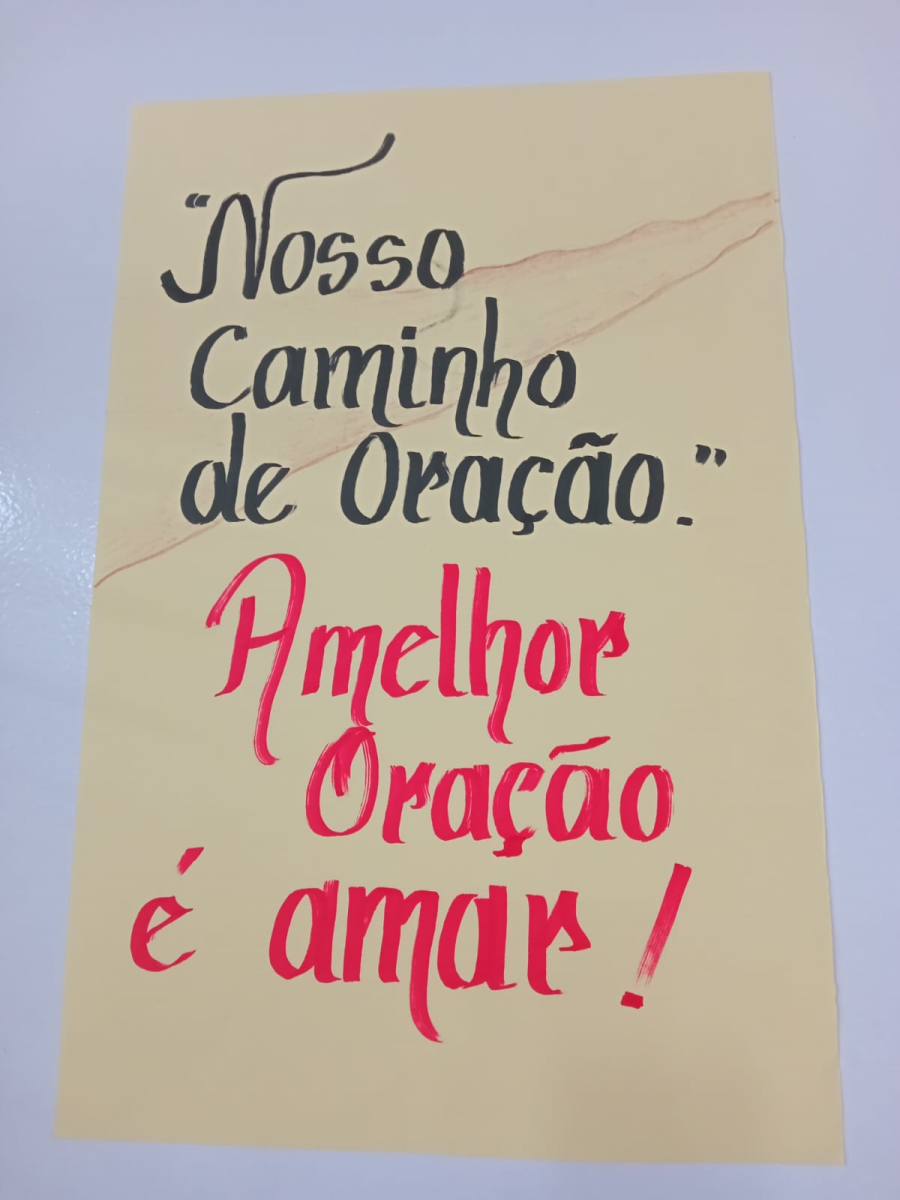 "Nosso
Caminho
de Oração."
A melhor
Oração
é amar!